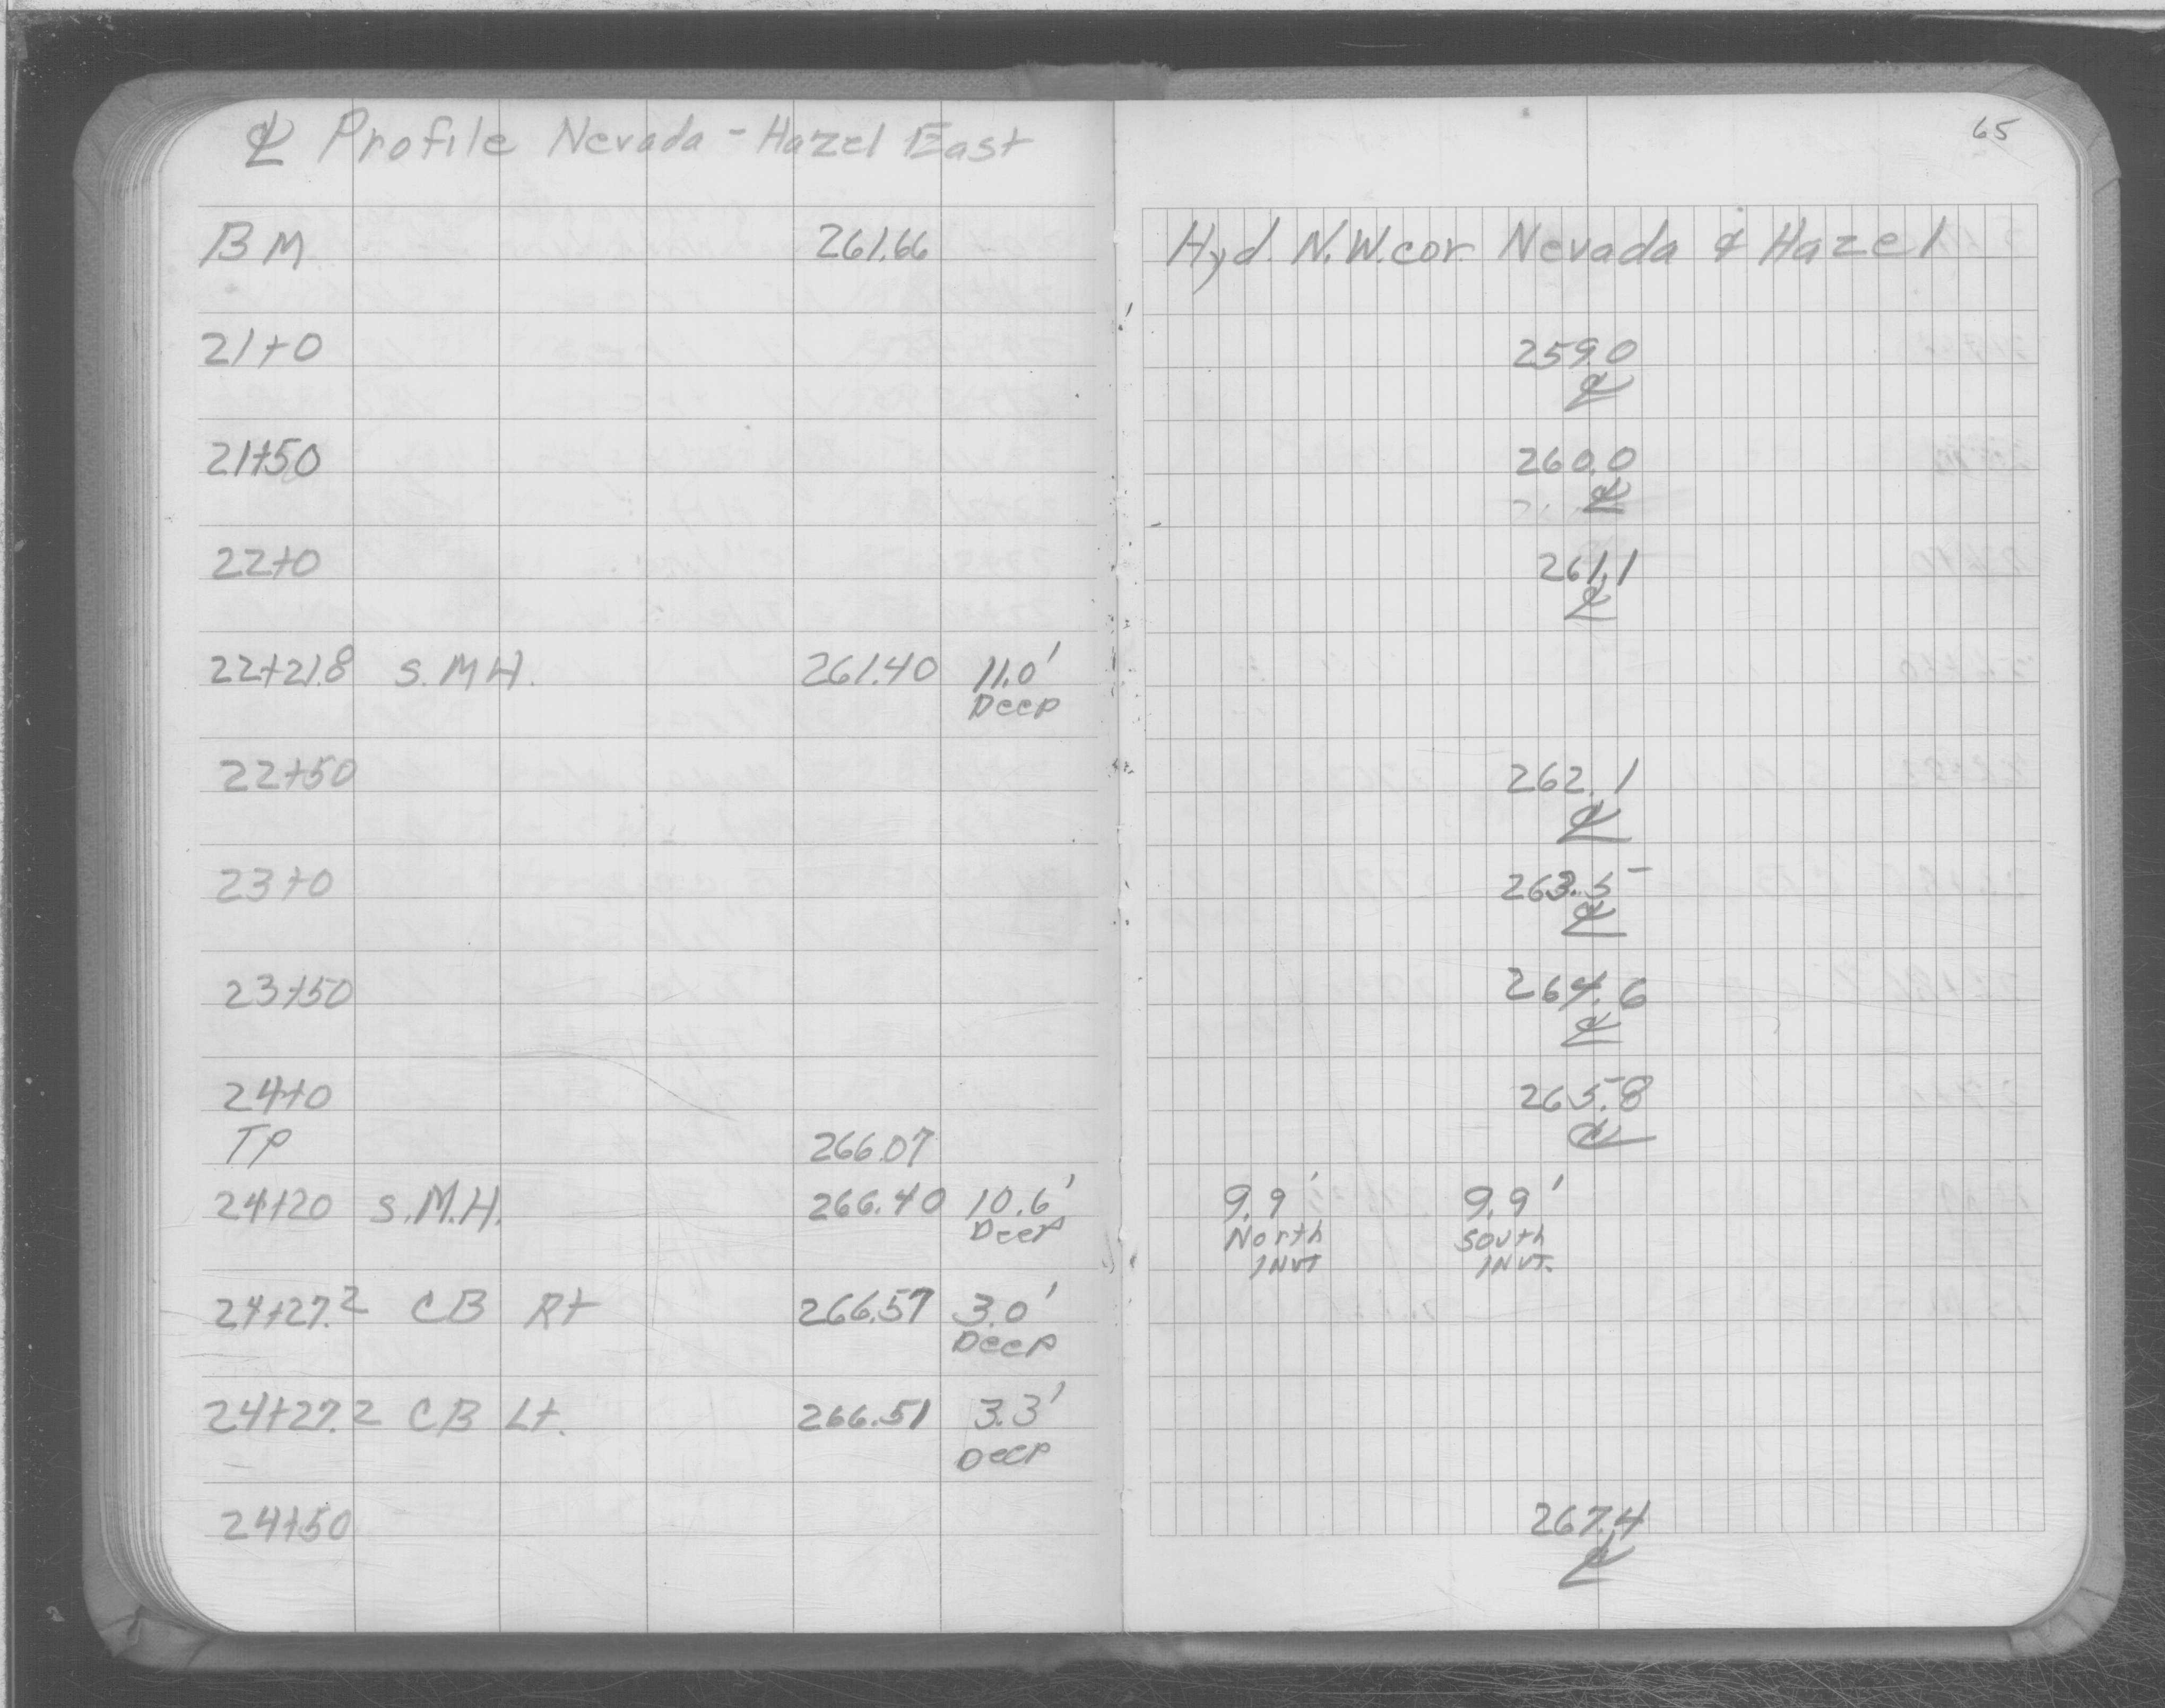 ℄ Profile Nevada - Hazel East
65
BM 261.66 Hyd. N.W. cor. Nevada & Hazel
21+0 259.0
℄
21+50 260.0
℄
22+0 261.1
℄
22+21.8 S.M.H. 261.40 11.0'
Deep
22+50 262.1
℄
23+0 263.5
℄
23+50 264.6
℄
24+0 265.8
℄
TP 266.07
24+20 S.M.H. 266.40 10.6' 9.9' 9.9'
Deep North South
INVT INVT.
24+27.2 CB Rt 266.57 3.0'
Deep
24+27.2 CB Lt. 266.51 3.3'
Deep
24+50 267.4
℄